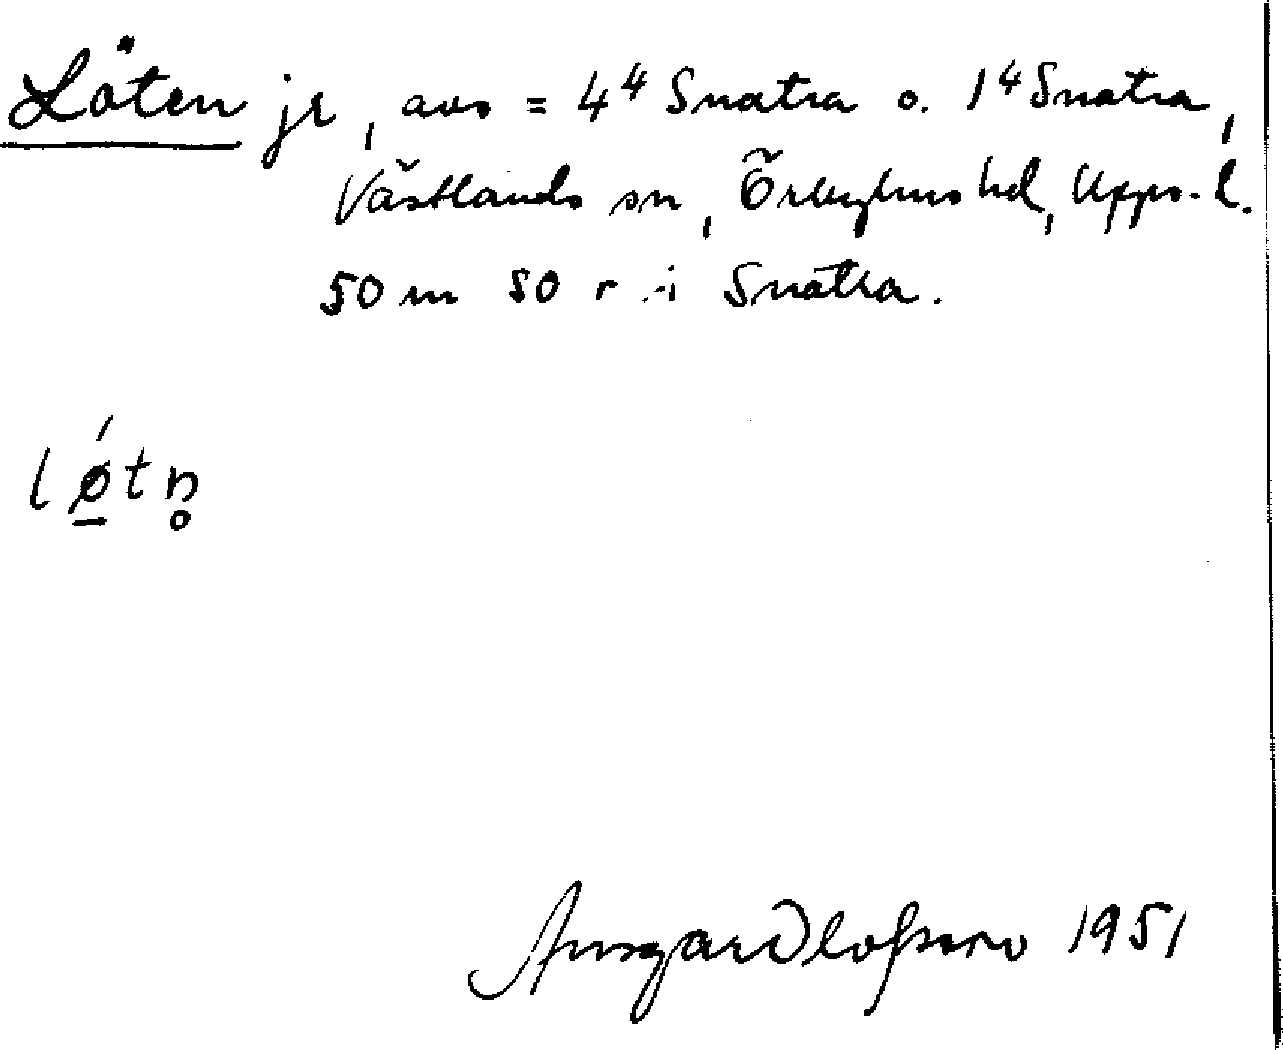 Löten je, avs = 4⁴ Snatra o. 1⁴ Snatra,
Västlands sn, Örbyhus hd, Upps. l.
50 m SO r i Snatra.
lǿ̲tn̥
Ansgar Olofsson 1951